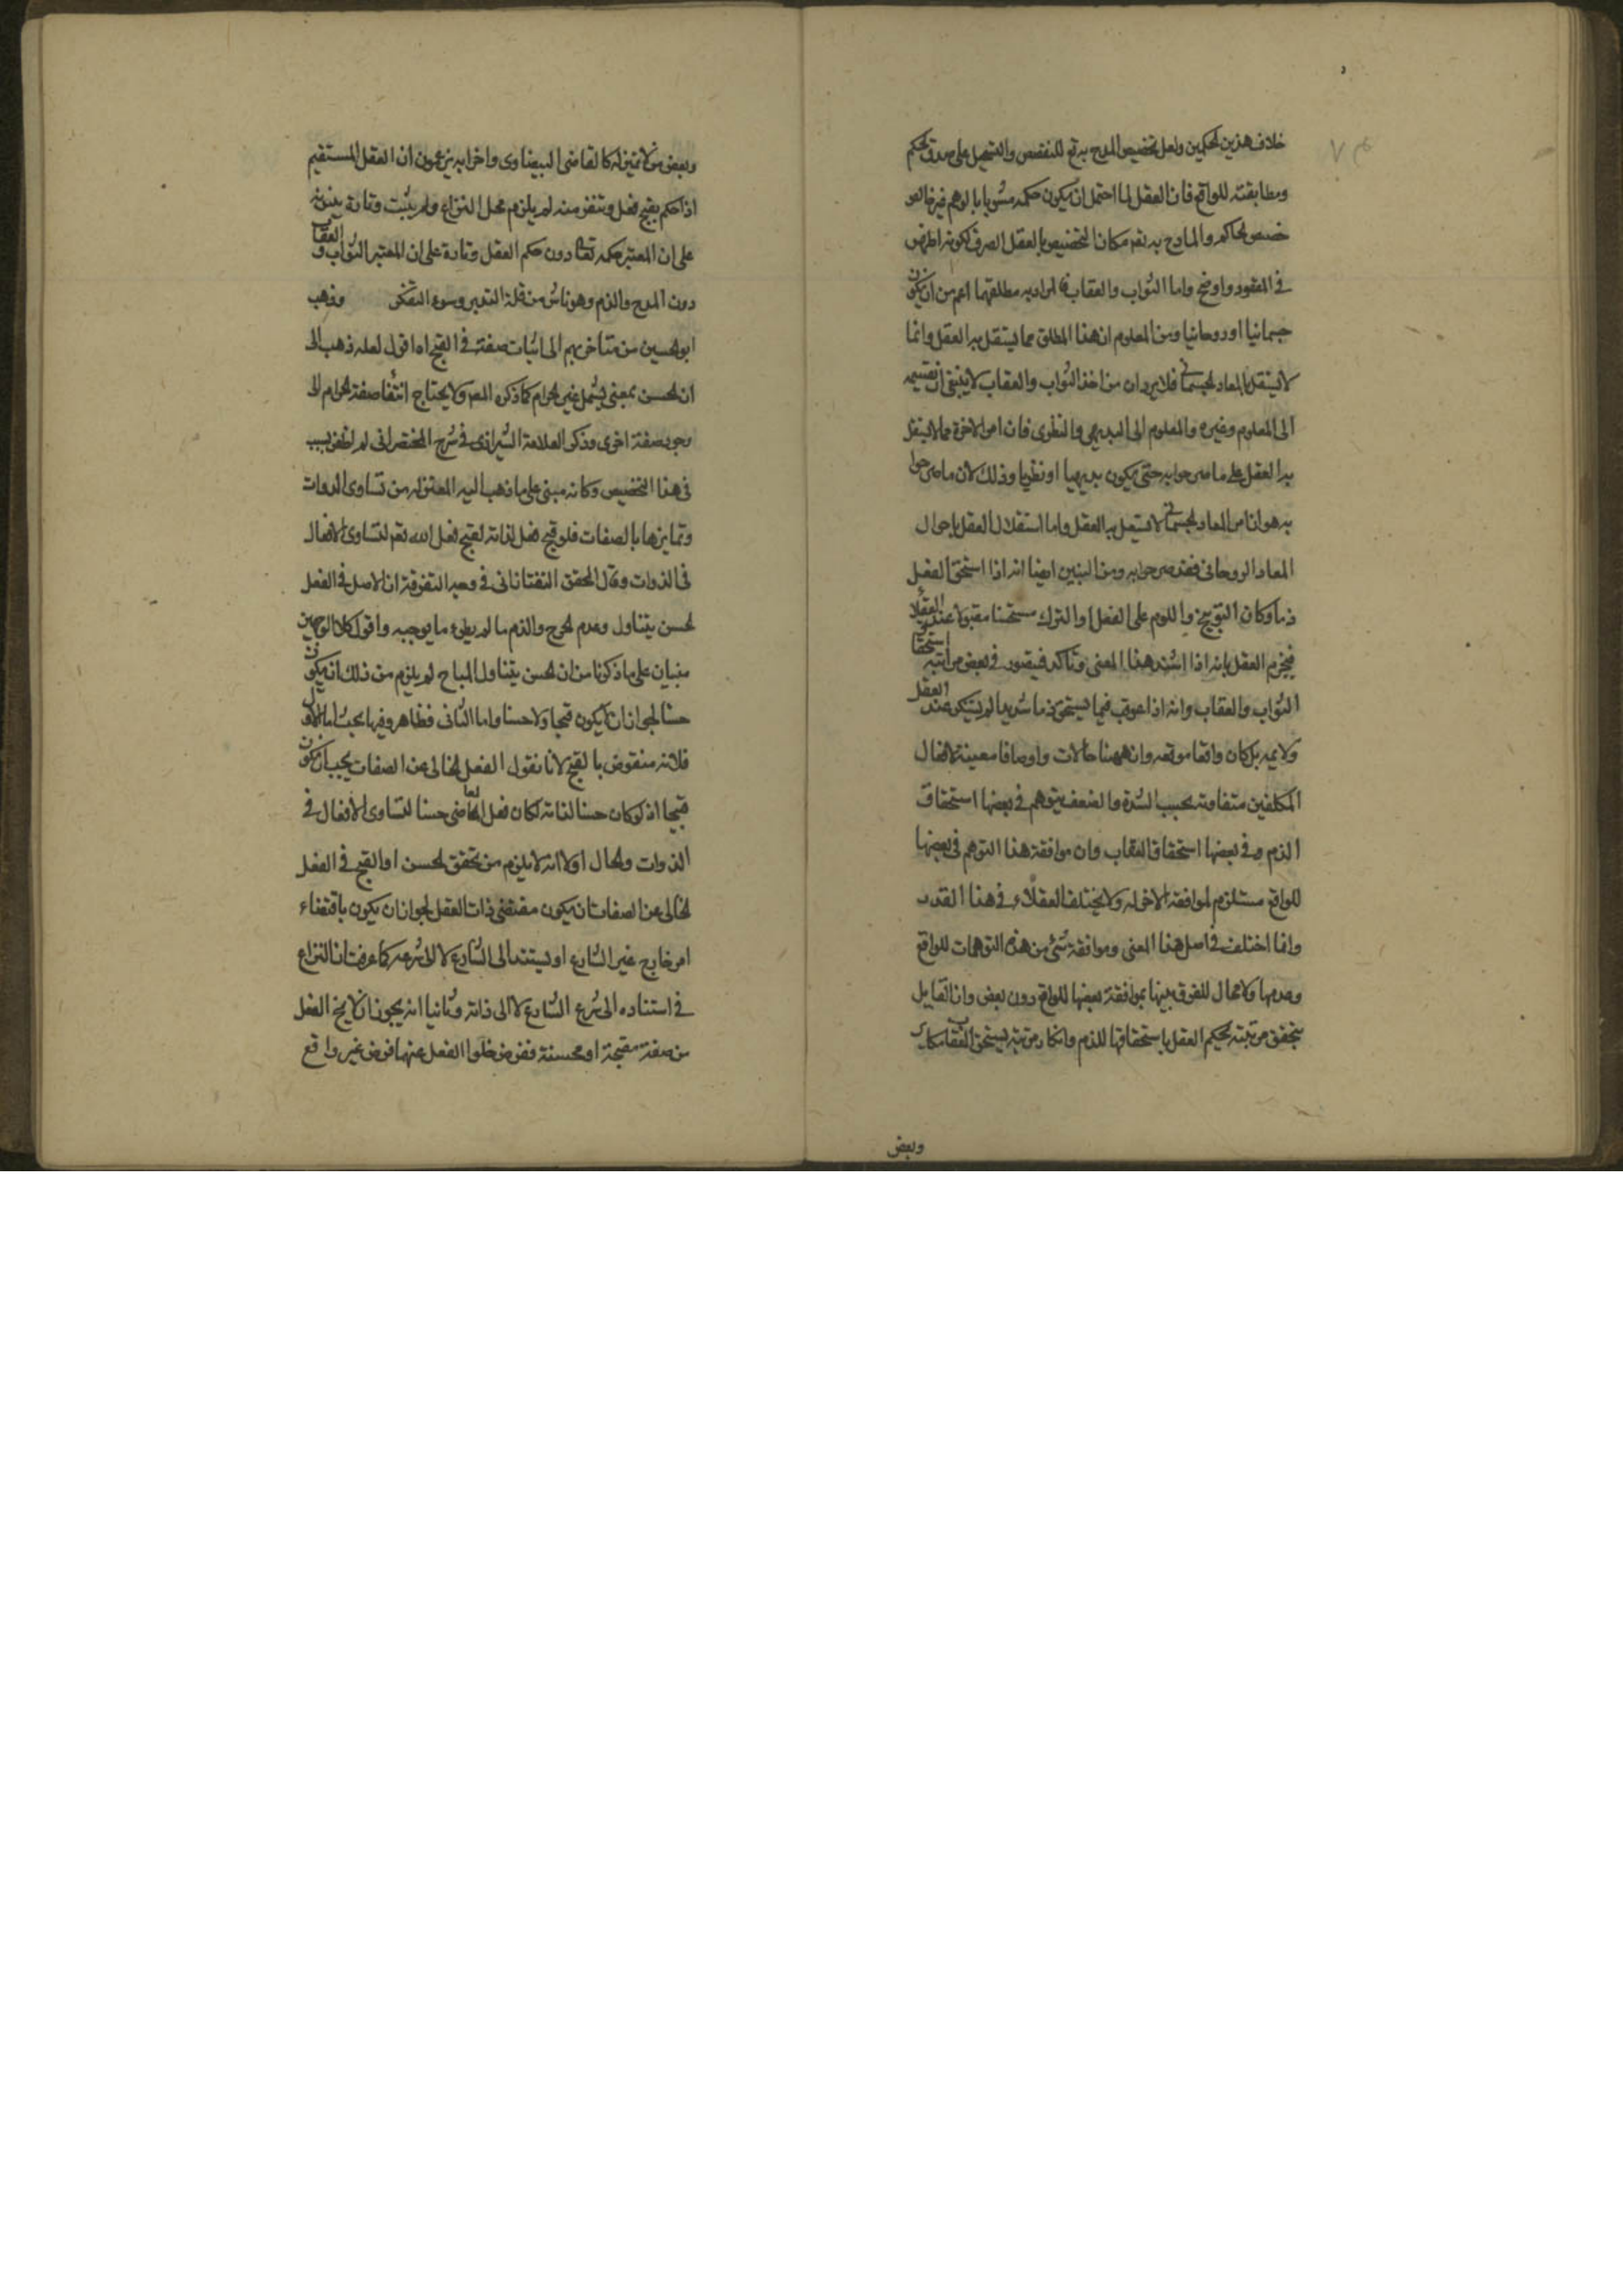 خلاف هذين الحكمين ولعل تخصيص المدح به تع للتنصيص والتسجيل على صدق الحكم
ومطابقته للواقع فان العقل لما احتمل ان يكون حكمه مشوبا بالوهم
خصص الحاكم والمادح به تعم مكان التخصيص بالعقل الصرف لكونه اظهر
في المقصود واوضح واما الثواب والعقاب فالمراد به مطلقهما اعم من ان يكون
جسمانيا او روحانيا ومن المعلوم ان هذا المطلق مما يستقل به العقل وانما
لا يستقل بالمعاد الجسماني فلا يرد ان من اخذ الثواب والعقاب لا ينبغي ان يقسمه
الى المعلوم وغيره والمعلوم الى البديهي والنظري فان امر الاخرة مما لا يستقل
به العقل على ما صرحوا به حتى يكون بديهيا او نظريا وذلك لان ما صرحوا
به هو ان امر المعاد الجسماني لا يستقل به العقل واما استقلال العقل باحوال
المعاد الروحاني فقد صرحوا به ومن البين ايضا انه اذا استحق الفعل
ذما وكان التوبيخ واللوم على الفعل او الترك مستحسنا مقبولا عند العقلا
فيجزم العقل بانه اذا اشتد هذا المعنى وتاكد فيتصور في بعض مراتبه استحقاق
الثواب والعقاب وانه اذا عوقب فيما يستحق ذما شديدا لم يستنكر عند العقل
ولا يمه بل كان واقعا موقعه وان ههنا حالات واوصافا معينة لافعال
المكلفين متفاوتة بحسب الشدة والضعف يتوهم في بعضها استحقاق
الذم وفي بعضها استحقاق العقاب وان موافقة هذا التوهم في بعضها
للواقع مستلزم لموافقة الاخر له ولا يختلف العقلاء في هذا القدر
وانما اختلف في اصل هذا المعنى وموافقة شئ من هذه التوهمات للواقع
وعدمها ولا مجال للفرق بينها بموافقة بعضها للواقع دون بعض وان القايل
بتحقق مرتبة يحكم العقل باستحقاقها للذم وانكار مرتبة يستحق العقاب مكابر
وبعض
وبعض من لا تميز له كالقاضي البيضاوي واضرابه يزعمون ان العقل المستقيم
اذا حكم بقبح فعل وتنفر منه لم يلزم محل النزاع ولم يثبت وتارة
على ان المعتبر حكمه تعا دون حكم العقل وتارة على ان المعتبر الثواب والعقاب
دون المدح والذم وهو ناش من قلة التدبر وسوء التفكر وذهب
ابو الحسين من متاخريهم الى اثبات صفة في القبح اه اقول لعله ذهب الى
ان الحسن بمعنى يشمل غير الحرام كما ذكره المص ولا يحتاج انتفا صفة الحرام الى
وجود صفة اخرى وذكر العلامة الشيرازي في شرح المختصر اني لم اظفر بسبب
في هذا التخصيص وكانه مبني على ما ذهب اليه المعتزله من تساوى الذوات
وتمايزها بالصفات فلو قبح فعل لذاته لقبح فعل الله تعم لتساوى الافعال
في الذوات وقال المحقق التفتازاني في وجه التفرقة ان الاصل في الفعل
الحسن يتناول وعدم الحرج والذم ما لم يطرء ما يوجبه واقول كلا الوجهين
مبنيان على ما ذكرنا من ان الحسن يتناول المباح لم يلزم من ذلك ان يكون
حسنا لجواز ان لا يكون قبيحا ولا حسنا واما الثاني فظاهر وفيها بحث اما الاول
فلانه منقوض بالقبح لانا نقول الفعل الخالي عن الصفات يجب ان يكون
قبيحا اذ لو كان حسنا لذاته لكان فعل المعاصي حسنا لتساوى الافعال في
الذوات والحال اولا انه لا يلزم من تحقق الحسن او القبح في الفعل
الخالي عن الصفات ان يكون مقتضى ذات العقل لجواز ان يكون باقتضاء
امر خارج غير الشارع او يستند الى الشارع لا الى شرعه كما عرفت ان النزاع
في استناده الى شرع الشارع لا الى ذاته وثانيا انه يجوز ان لا يخ الفعل
من صفة مقبحة او محسنة ففرض خلوا الفعل عنها فرض غير واقع